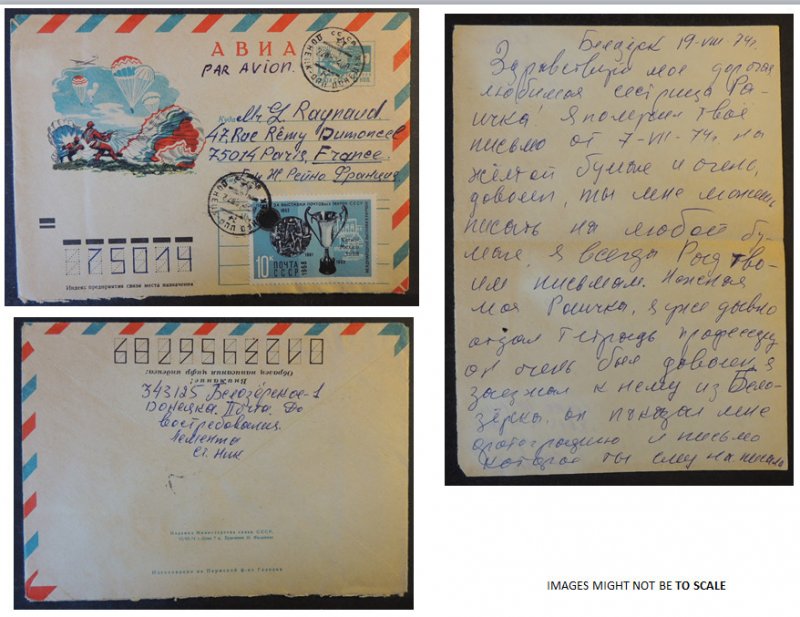 АВИА
PAR AVION.
Куда Mr G. Raynaud
47, Rue Rémy Dumoncel
75014 Paris, France.
Рейно Франция
ПОЧТА
СССР
10к
75014
Индекс предприятия связи места назначения
Образец написания цифр индекса:
Внимание!
343125 Белозёрское-1
Донецка. Почта. До
востребования.
Лемента
Ст. Ник
Издание Министерства связи СССР.
Белозёрк 19-VIII 74г.
Здравствуй моя дорогая
любимая сестрица Ра-
ичка! Я получил твоё
письмо от 7-VII-74г. на
жёлтой бумаге и очень
доволен, ты мне можешь
писать на любой бу-
маге я всегда Рад тво-
им письмам. Нежная
моя Раичка, я уже давно
отдал тетрадь профессору
он очень был доволен, я
заезжал к нему из Бело-
зёрки. он мне
фотографию и письмо
которое ты ему написала
IMAGES MIGHT NOT BE TO SCALE